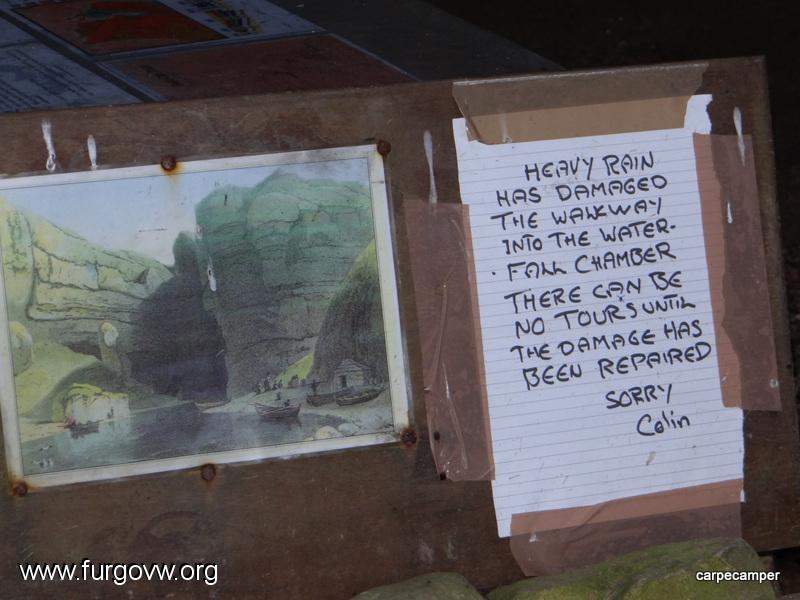 HEAVY RAIN
HAS DAMAGED
THE WALKWAY
INTO THE WATER-
FALL CHAMBER
THERE CAN BE
NO TOURS UNTIL
THE DAMAGE HAS
BEEN REPAIRED
SORRY
Colin
www.furgovw.org
carpecamper